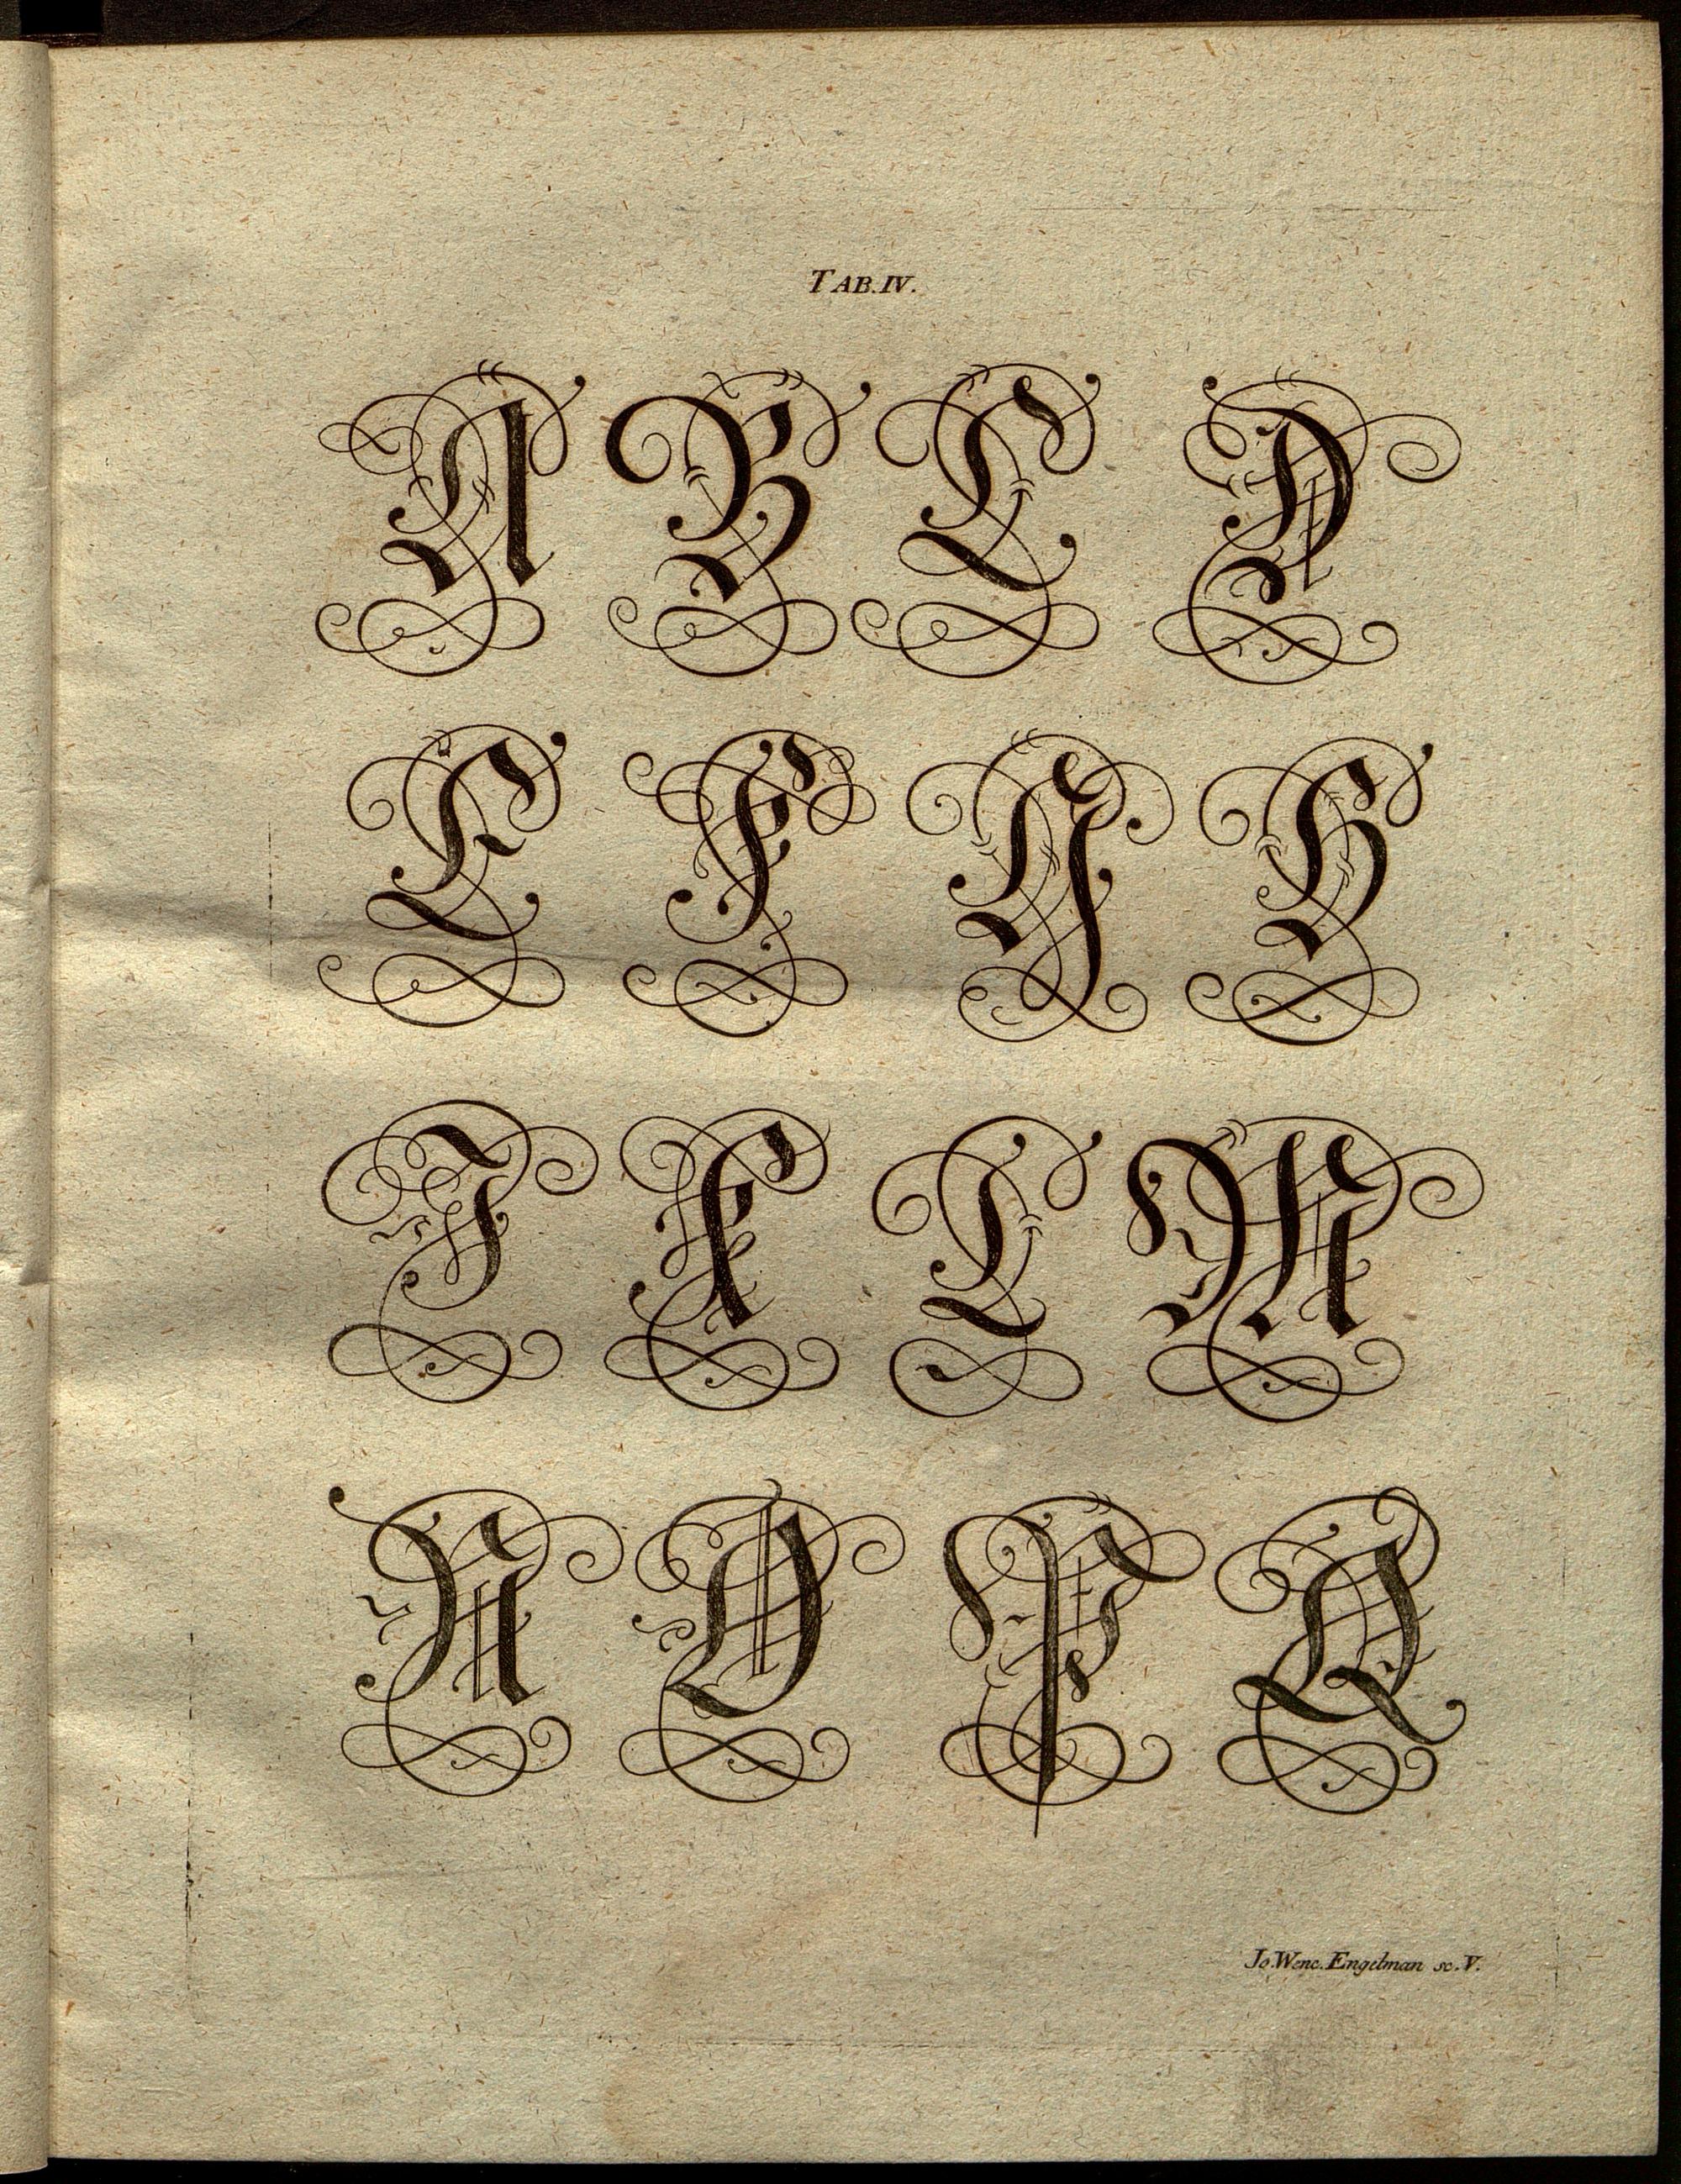 TAB.IV.
A B C D
E F G H
I K L M
N O P Q
Jo.Wenc.Engelman sc.V.